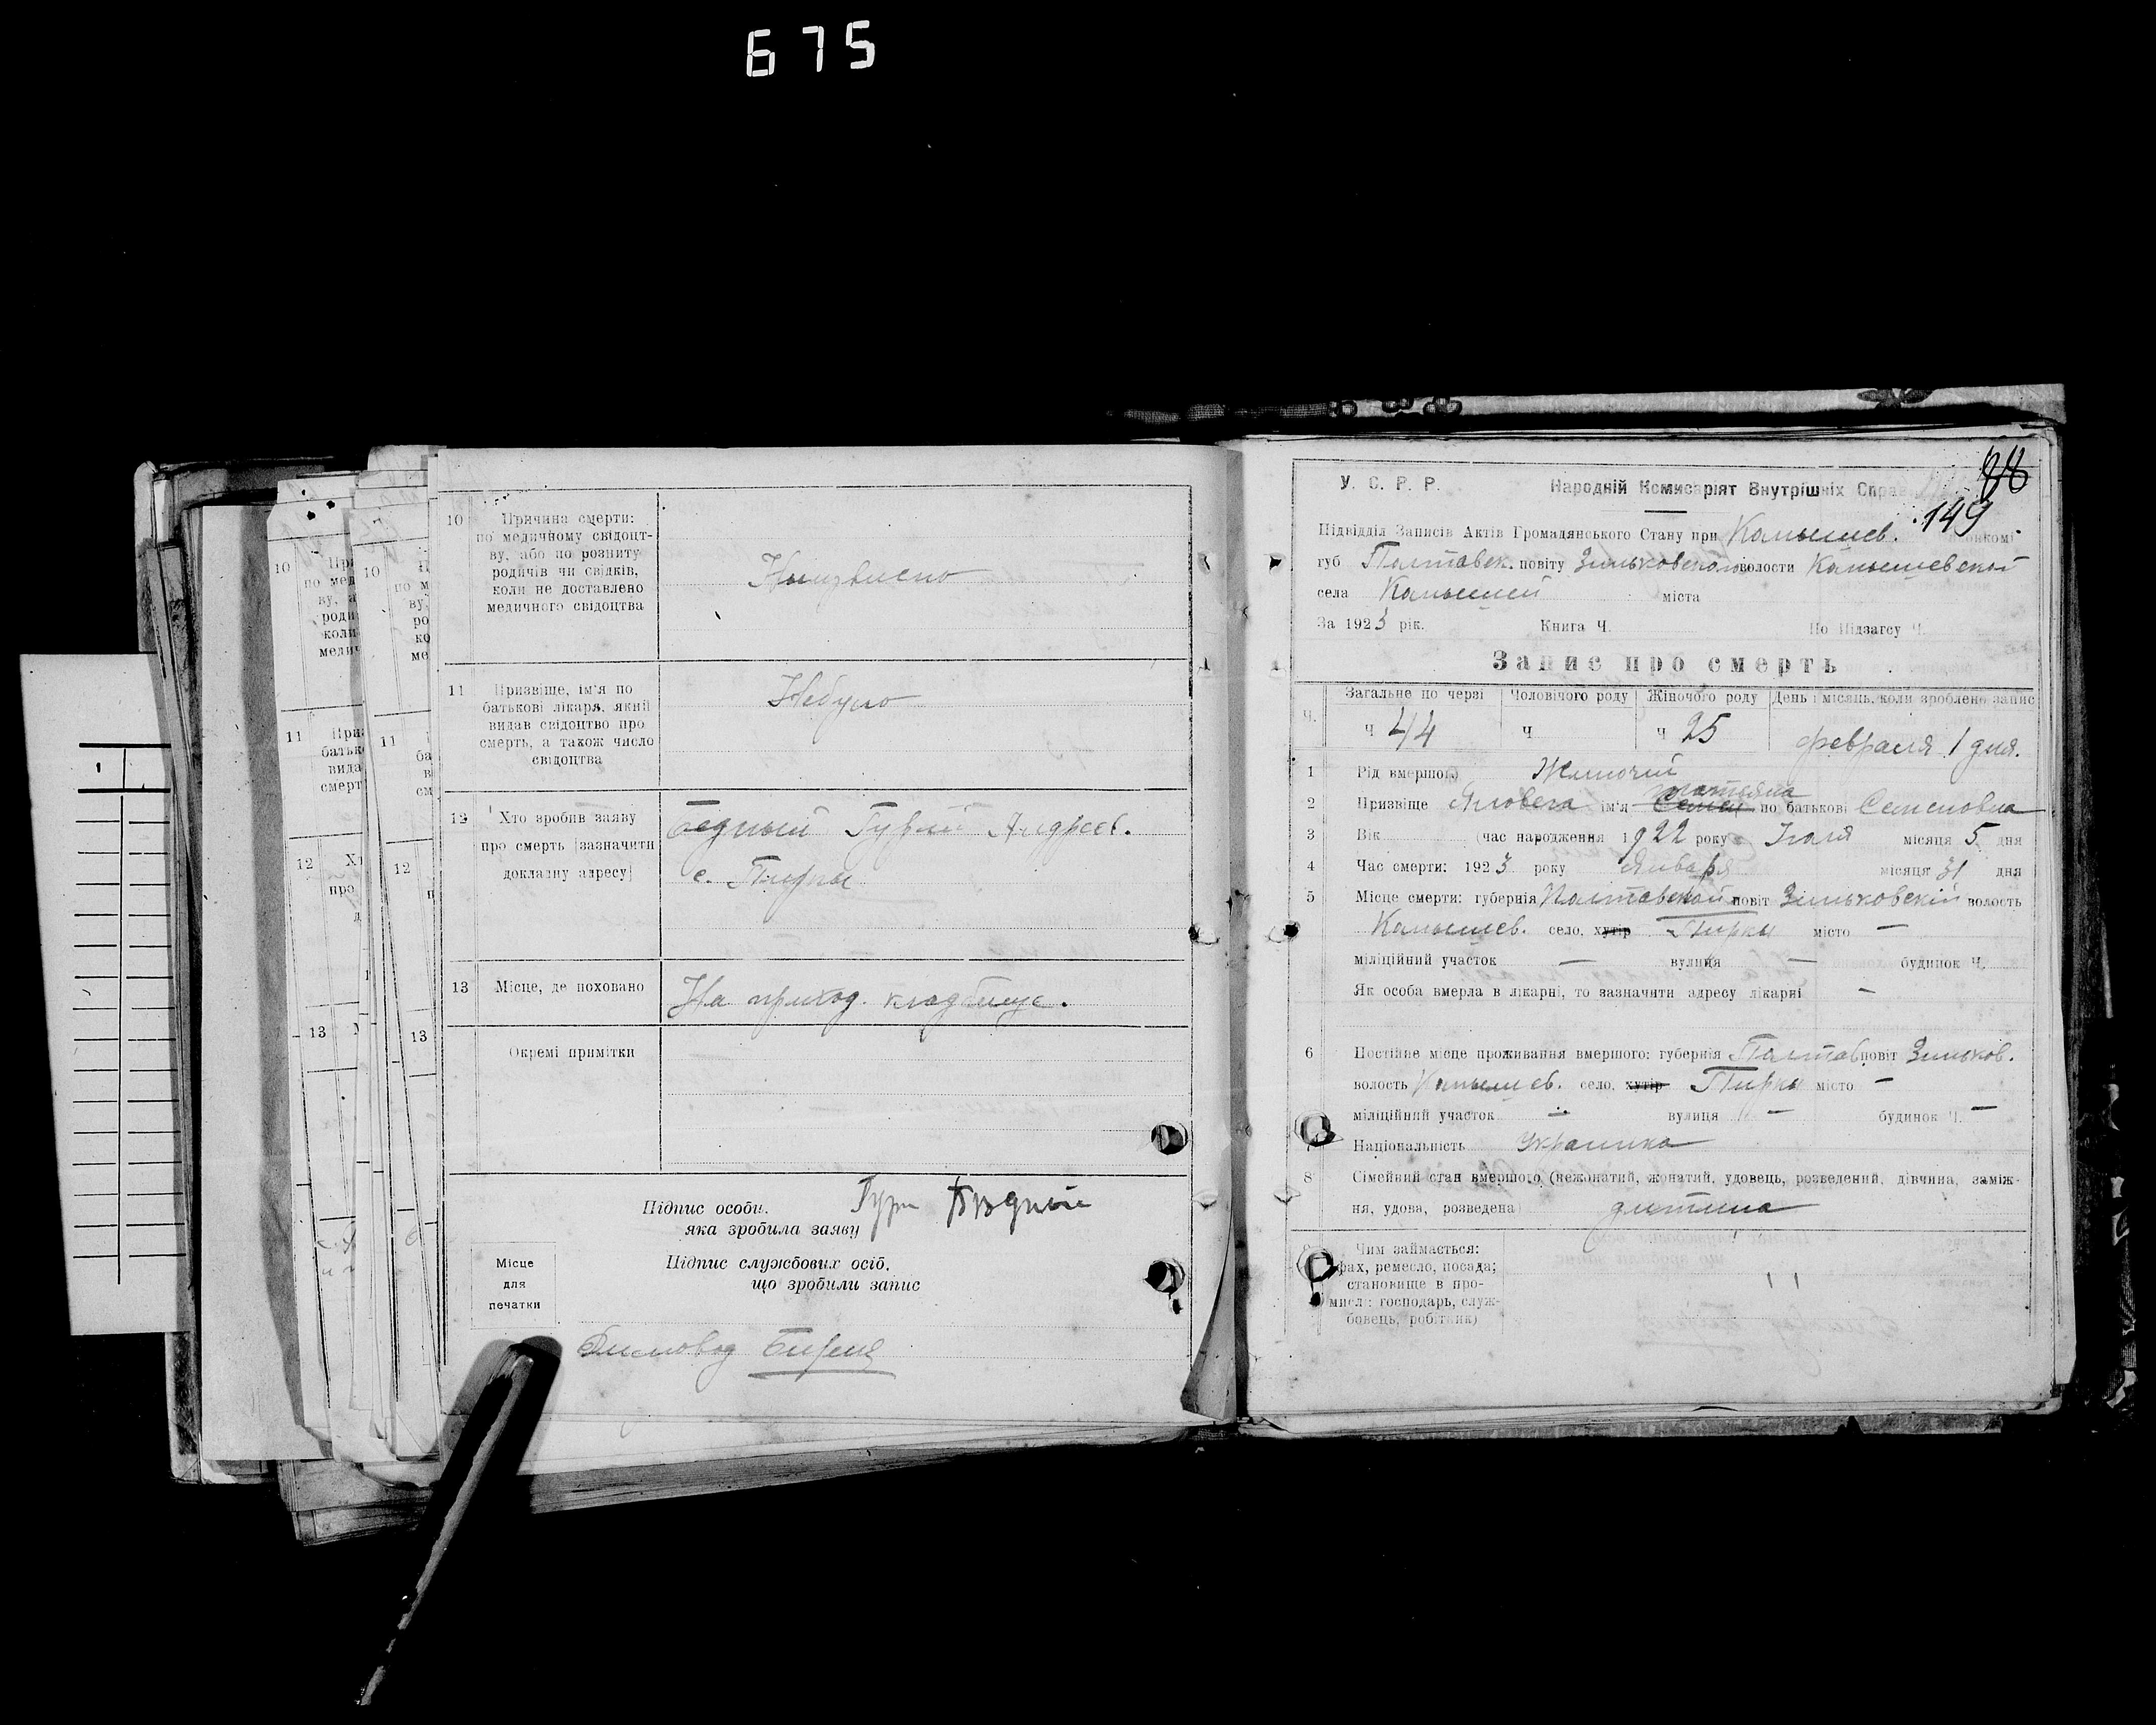 675
10 Причина смерти:
по медичному свідоцт-
ву, або по розпиту
родичів чи свідків,
коли не доставлено
медичного свідоцтва
Неизвисно
11 Призвіще, ім'я по
батькові лікаря, який
видав свідоцтво про
смерть, а також число
свідоцтва
Небуло
12 Хто зробив заяву
про смерть (зазначити
докладну адресу)
Бедный Гурий Андреев.
с. Пирки
13 Місце, де поховано
На приход. кладбище.
Окремі примітки
Підпис особи,
яка зробила заяву
Гури Бедный
Підпис службових осіб,
що зробили запис
Місце
для
печатки
Диловод
88
149
У. С. Р. Р. Народній Комисаріят Внутрішніх Справ
Підвідділ Записів Актів Громадянського Стану при Камышев. виконкомі
губ Полтавск. повіту Зиньковского волости Камышевской
села Камышей міста
За 1923 рік. Книга Ч. По Підзагсу Ч.
Запис про смерть
Ч. Загальне по черзі Чоловічого роду Жіночого роду День і місяць, коли зроблено запис
Ч 44 Ч Ч 25 февраля 1 дня.
1 Рід вмершого Жиночий
2 Призвіще Яловега ім'я Семен Татьяна по батькові Семеновна
3 Вік (час народження 1922 року Июля місяця 5 дня
4 Час смерти: 1923 року Января місяця 31 дня
5 Місце смерти: губернія Полтавской повіт Зиньковский волость
Камышев. село, хутір Пирки місто —
міліційний участок — вулиця — будинок Ч.
Як особа вмерла в лікарні, то зазначити адресу лікарні —
6 Постійне місце проживання вмершого: губернія Полтав. повіт Зиньков.
волость Камышев. село, хутір Пирки місто —
міліційний участок — вулиця — будинок Ч. —
7 Національність Украинка
8 Сімейний стан вмершого (нежонатий, жонатий, удовець, розведений, дівчина, заміж-
ня, удова, розведена) дитина
9 Чим займається:
фах, ремесло, посада;
становище в про-
мислі: господарь, служ-
бовець, робітник)